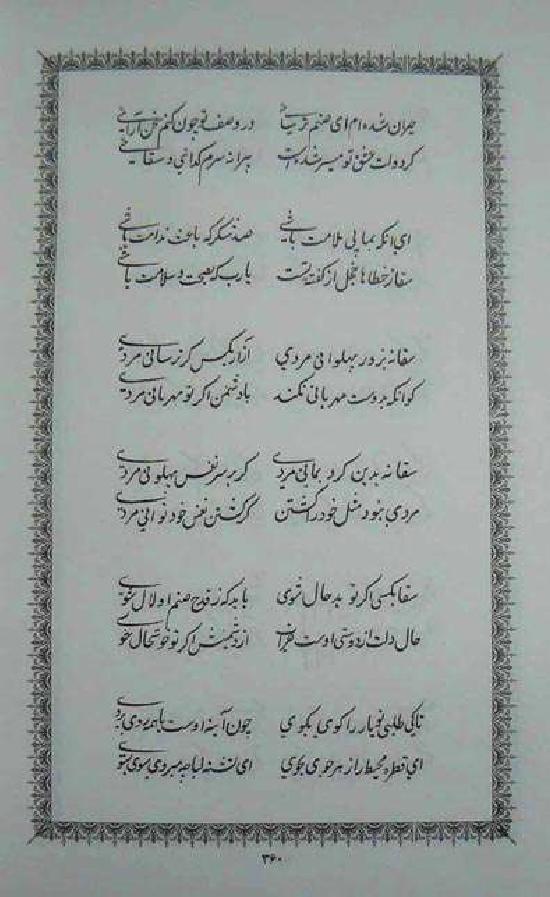 حیران شده ام ای صنم ترسائی در وصف تو چون کنم سخن آرائی
گر دولت عشق تو میسر شده است پیرانه سرم گدائی و سقائی
ای آنکه بما پی ملامت باشی صد شکر که باعث ندامت باشی
سقا ز خطاها خجل از گفته تست یارب که بصحت و سلامت باشی
سقا نه بزور پهلوانی مردی آزار بکس گر نرسانی مردی
گو آنکه بدوست مهربانی نکند با دشمن اگر تو مهربانی مردی
سقا نه بدین کر و بمانی مردی گر بر سر نفس پهلوانی مردی
مردی نبود مثل خود را کشتن گر کشتن نفس خود توانی مردی
سقا بکسی اگر تو بد حال شوی باید که ز مدح صنم او لال شوی
حال دلت از دوستی اوست از دشمنیش اگر تو خوشحال شوی
تا کی طلبی تو یار را کوی بکوی چون آینه اوست با همه روی بروی
ای قطره محیط را ز هر جوی مجوی ای تشنه لب چه میروی سوی بسوی
۳۶۰